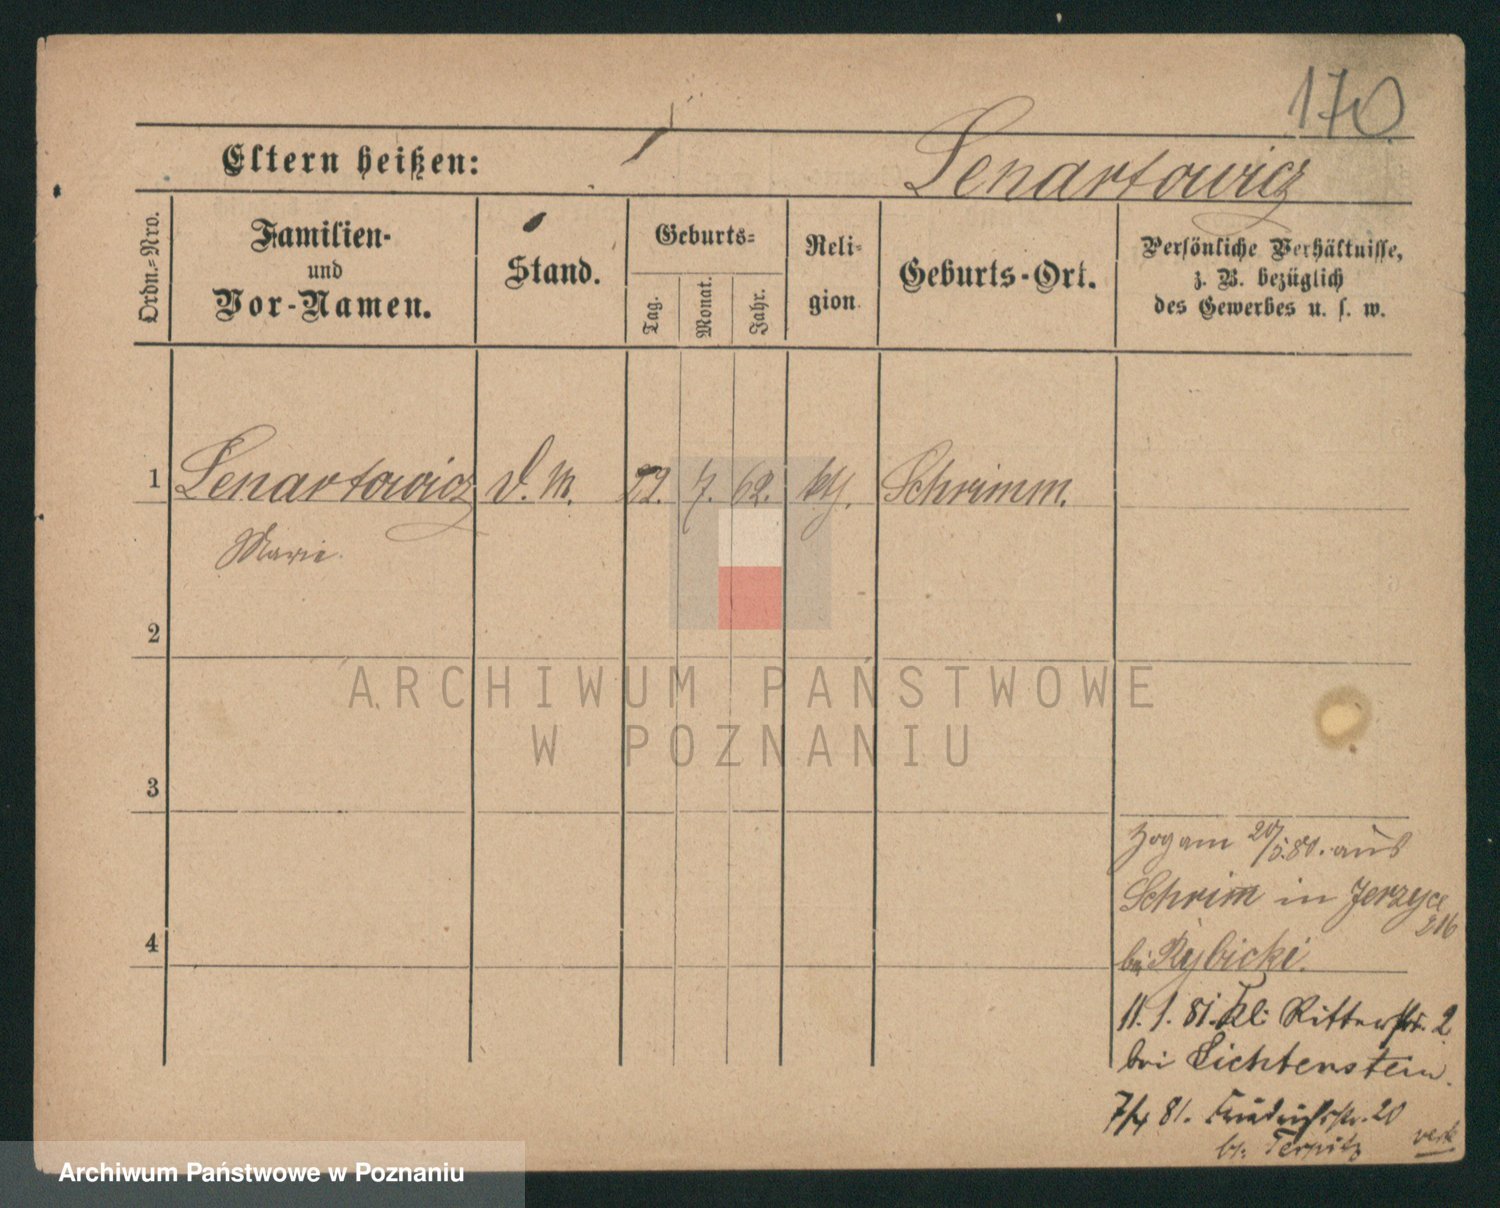 170
Eltern heißen:
Lenartowicz
Ordn.=Nro.
Familien-
und
Vor-Namen.
Stand.
Geburts=
Tag.
Monat.
Jahr.
Reli-
gion
Geburts-Ort.
Persönliche Verhältnisse,
z. B. bezüglich
des Gewerbes u. s. w.
1 Lenartowicz D. M. 22. 7. 62. Schrimm.
Marie
2
3
4
Zog am 20/5.80. aus
Schrim in Jerzyce
216
bei Rybicki.
11. 1. 81. Kl: Ritterstr. 2
bei Lichtenstein.
7/4 81. Friedrichstr. 20
b. Terpitz
ARCHIWUM PAŃSTWOWE
W POZNANIU
Archiwum Państwowe w Poznaniu